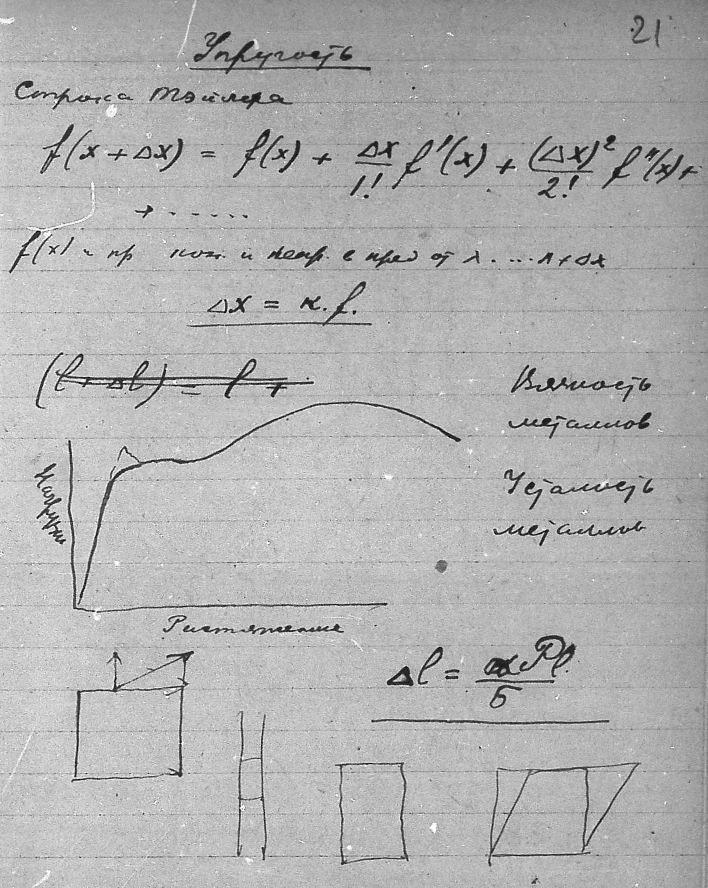 21
Упругость
Строка Тэйлера
f(x + Δx) = f(x) + Δx/1! f'(x) + (Δx)²/2! f''(x) +
+ ......
f(x) и пр и непр. в пред от x .... x + Δx
Δx = к. f.
(l + Δl) = l +
Вязкость
металлов
Усталость
металлов
Нагрузки
Растяжение
Δl = αPl/б